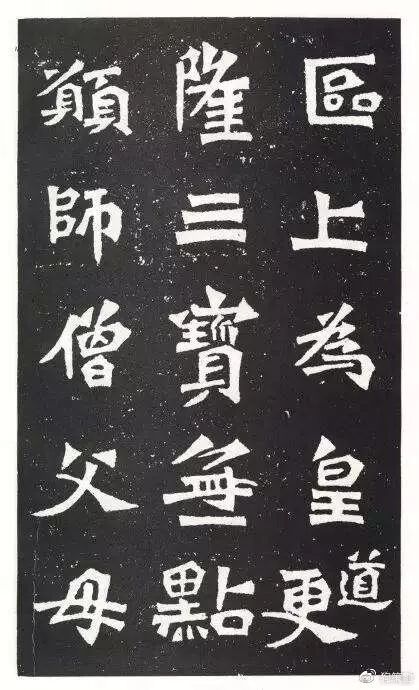 區上為皇道更
隆三寶無點
願師僧父母